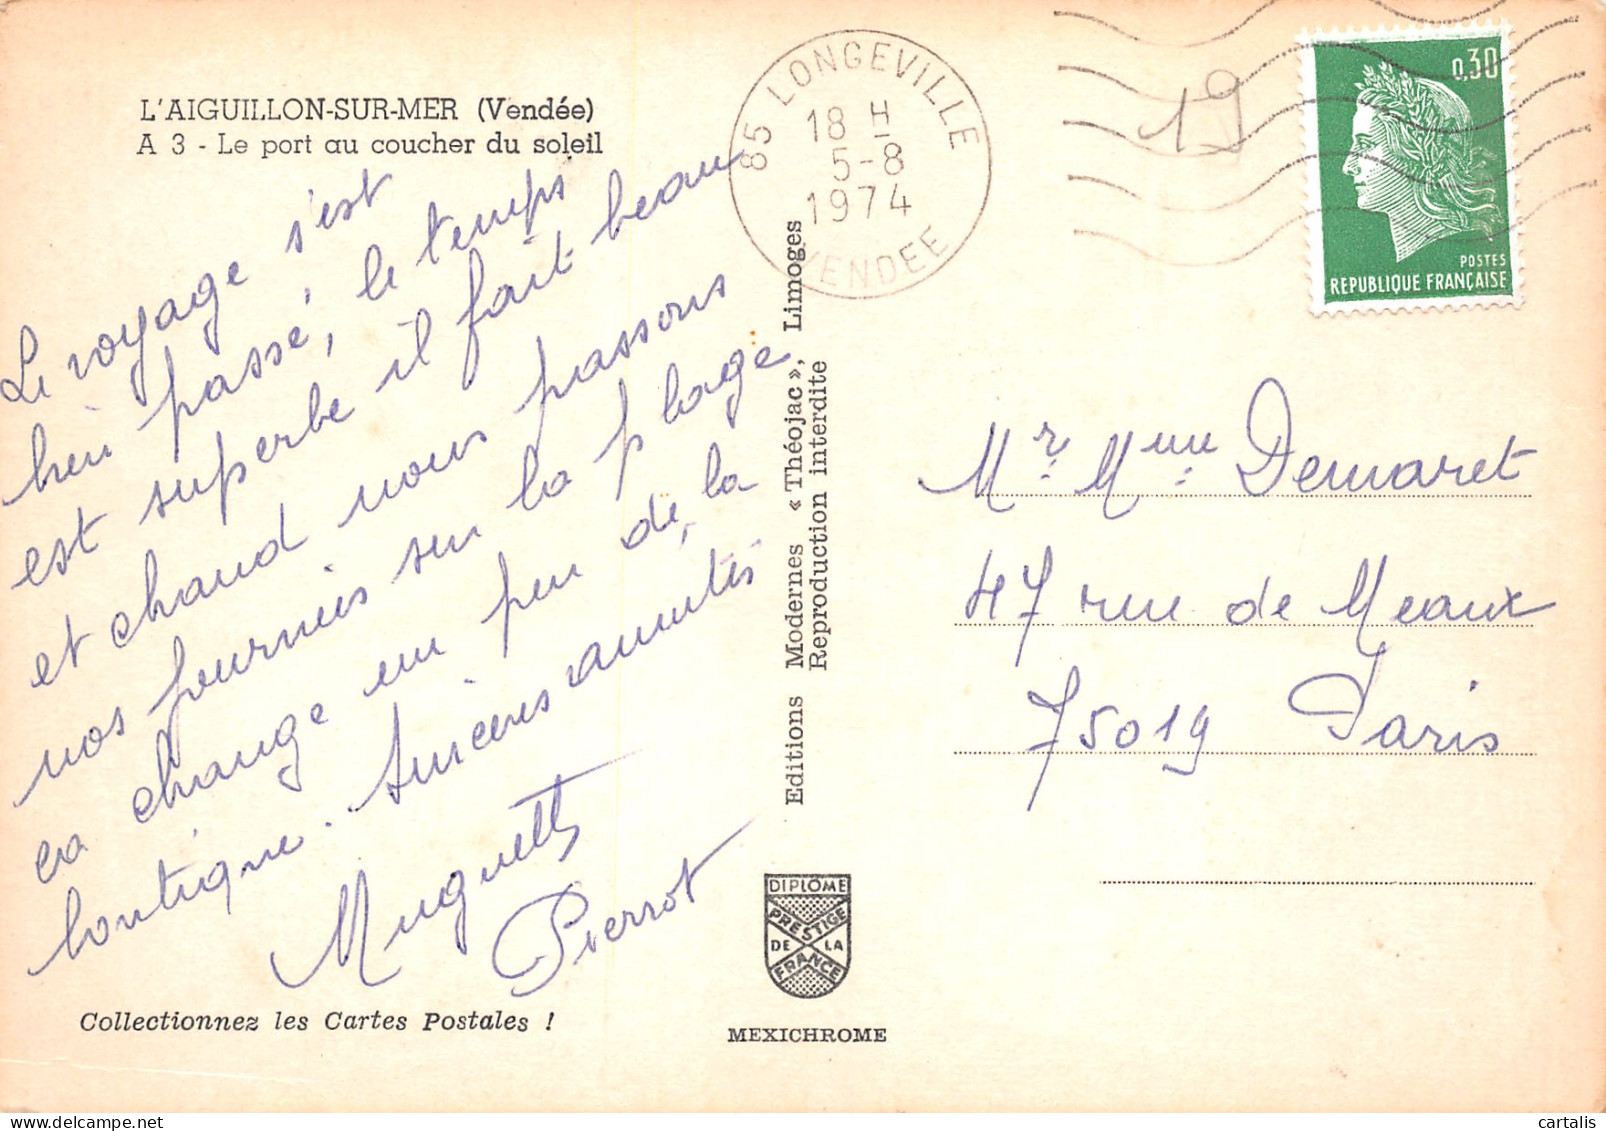 L'AIGUILLON-SUR-MER (Vendée)
A 3 - Le port au coucher du soleil
Le voyage s'est
bien passé, le temps
est superbe il fait beau
et chaud nous passons
nos journées sur la plage
ça change un peu de la
boutique. Sincères amitiés
Muguette
Pierrot
Collectionnez les Cartes Postales !
85 LONGEVILLE
18 H
5-8
1974
VENDEE
Editions Modernes « Théojac », Limoges
Reproduction interdite
DIPLOME
PRESTIGE
DE LA
FRANCE
MEXICHROME
19
0,30
POSTES
REPUBLIQUE FRANÇAISE
Mr. Mme Demaret
47 rue de Meaux
75019 Paris
cartalis